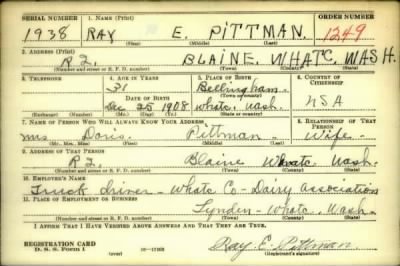 SERIAL NUMBER 1. NAME (Print) ORDER NUMBER
1938 RAY E. PITTMAN. 1249
(First) (Middle) (Last)
2. ADDRESS (Print)
R 2. BLAINE, WHATC, WASH.
(Number and street or R. F. D. number) (Town) (County) (State)
3. TELEPHONE 4. AGE IN YEARS 5. PLACE OF BIRTH 6. COUNTRY OF CITIZENSHIP
31 Bellingham. USA
DATE OF BIRTH (Town or county)
Dec 25 1908 Whatc. Wash.
(Exchange) (Number) (Mo.) (Day) (Yr.) (State or country)
7. NAME OF PERSON WHO WILL ALWAYS KNOW YOUR ADDRESS 8. RELATIONSHIP OF THAT PERSON
Mrs Doris. Pittman - Wife -
(Mr., Mrs., Miss) (First) (Middle) (Last)
9. ADDRESS OF THAT PERSON
R 2. Blaine Whatc. Wash.
(Number and street or R. F. D. number) (Town) (County) (State)
10. EMPLOYER'S NAME
Truck driver - Whatc Co - Dairy Association
11. PLACE OF EMPLOYMENT OR BUSINESS
Lynden - Whatc. Wash.
(Number and street or R. F. D. number) (Town) (County) (State)
I AFFIRM THAT I HAVE VERIFIED ABOVE ANSWERS AND THAT THEY ARE TRUE.
REGISTRATION CARD
D. S. S. Form 1 (over) Ray. E. Pittman
(Registrant's signature)